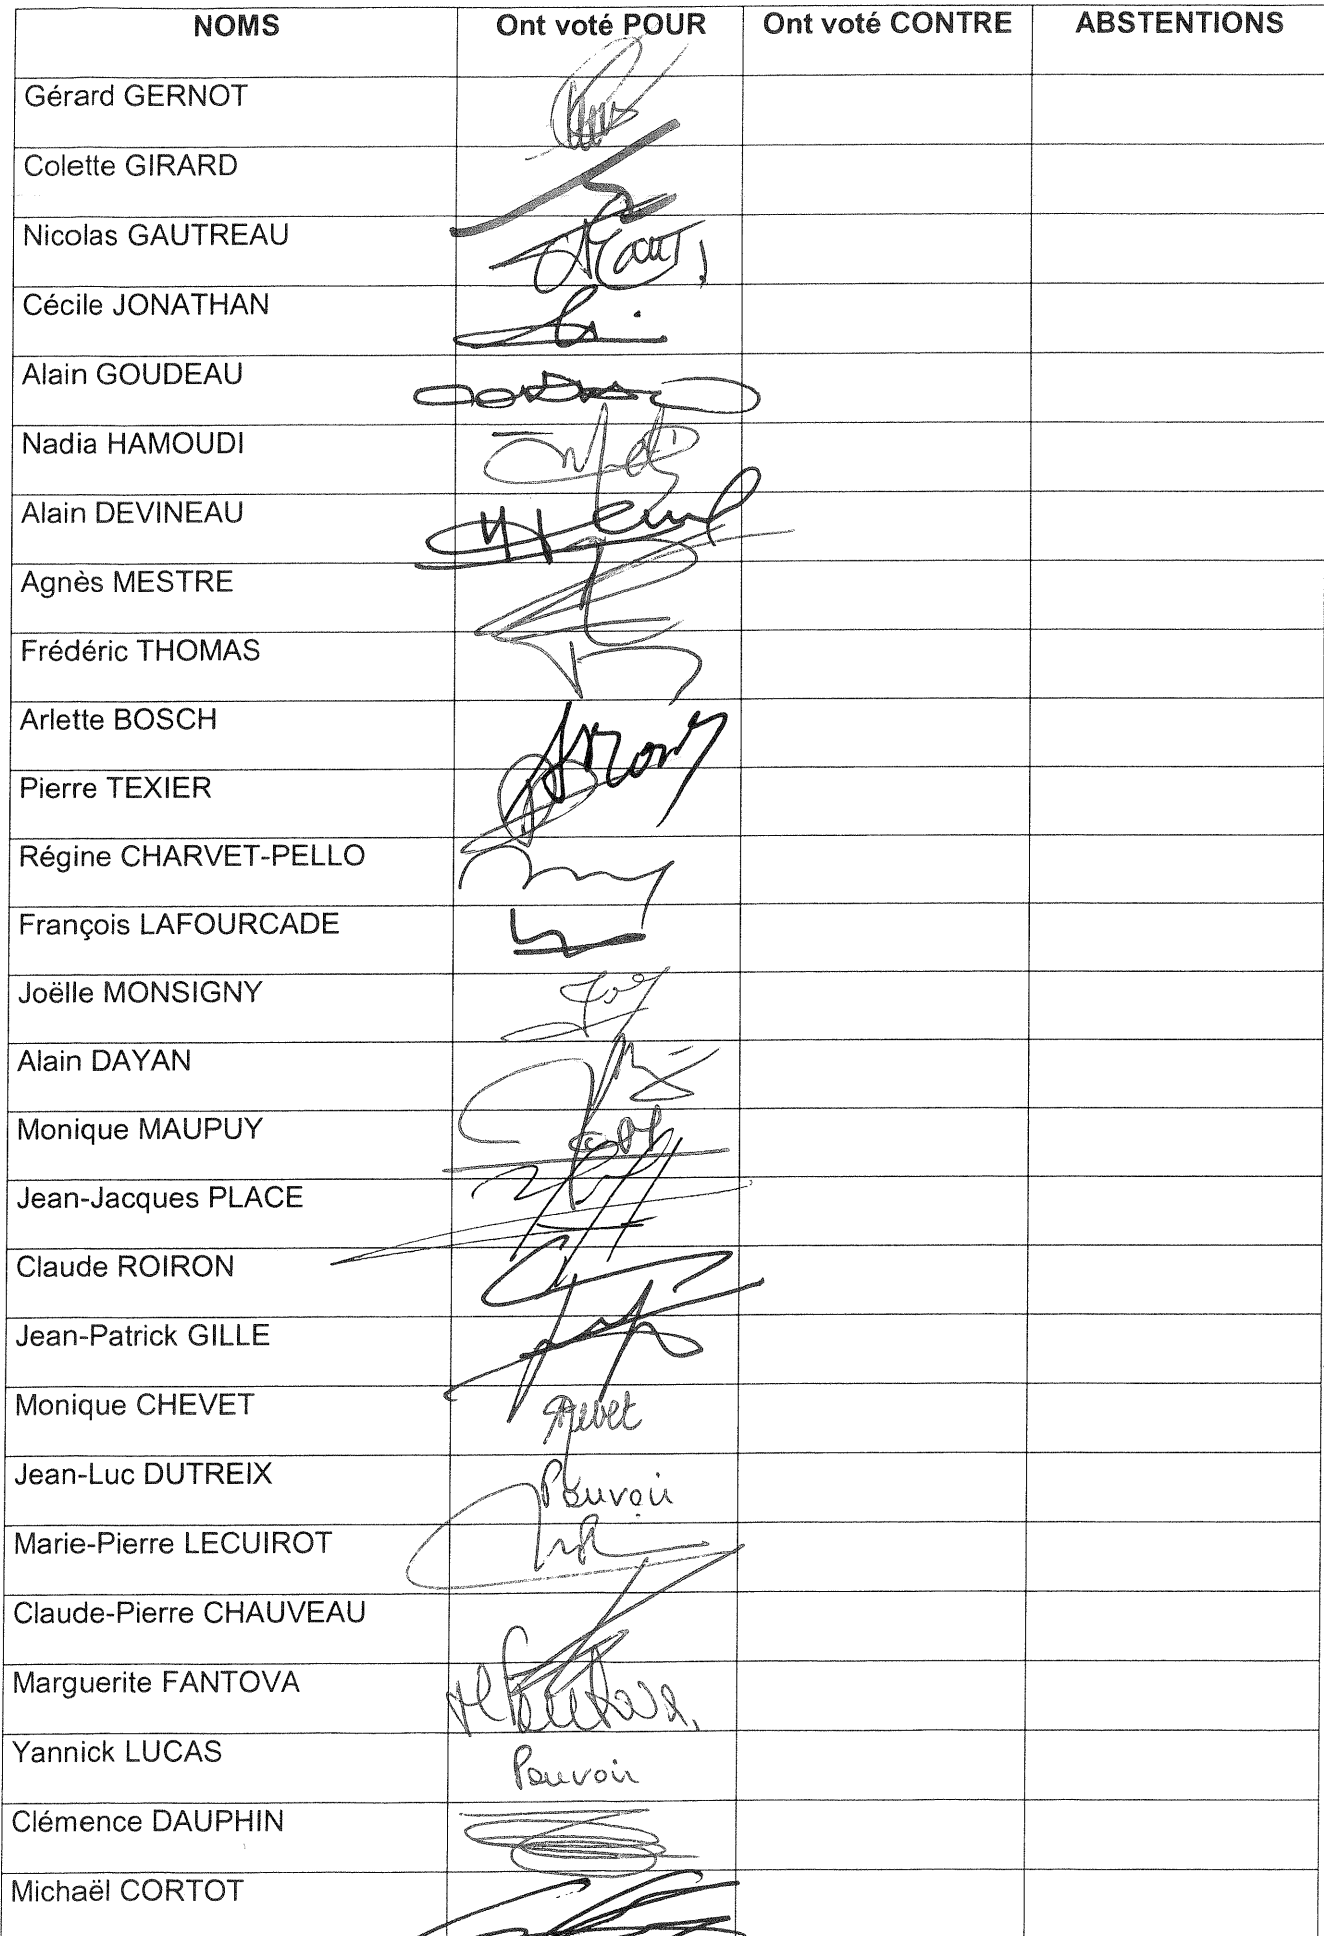 NOMS Ont voté POUR Ont voté CONTRE ABSTENTIONS
Gérard GERNOT
Colette GIRARD
Nicolas GAUTREAU
Cécile JONATHAN
Alain GOUDEAU
Nadia HAMOUDI
Alain DEVINEAU
Agnès MESTRE
Frédéric THOMAS
Arlette BOSCH
Pierre TEXIER
Régine CHARVET-PELLO
François LAFOURCADE
Joëlle MONSIGNY
Alain DAYAN
Monique MAUPUY
Jean-Jacques PLACE
Claude ROIRON
Jean-Patrick GILLE
Monique CHEVET
Jean-Luc DUTREIX Pouvoir
Marie-Pierre LECUIROT
Claude-Pierre CHAUVEAU
Marguerite FANTOVA
Yannick LUCAS Pouvoir
Clémence DAUPHIN
Michaël CORTOT